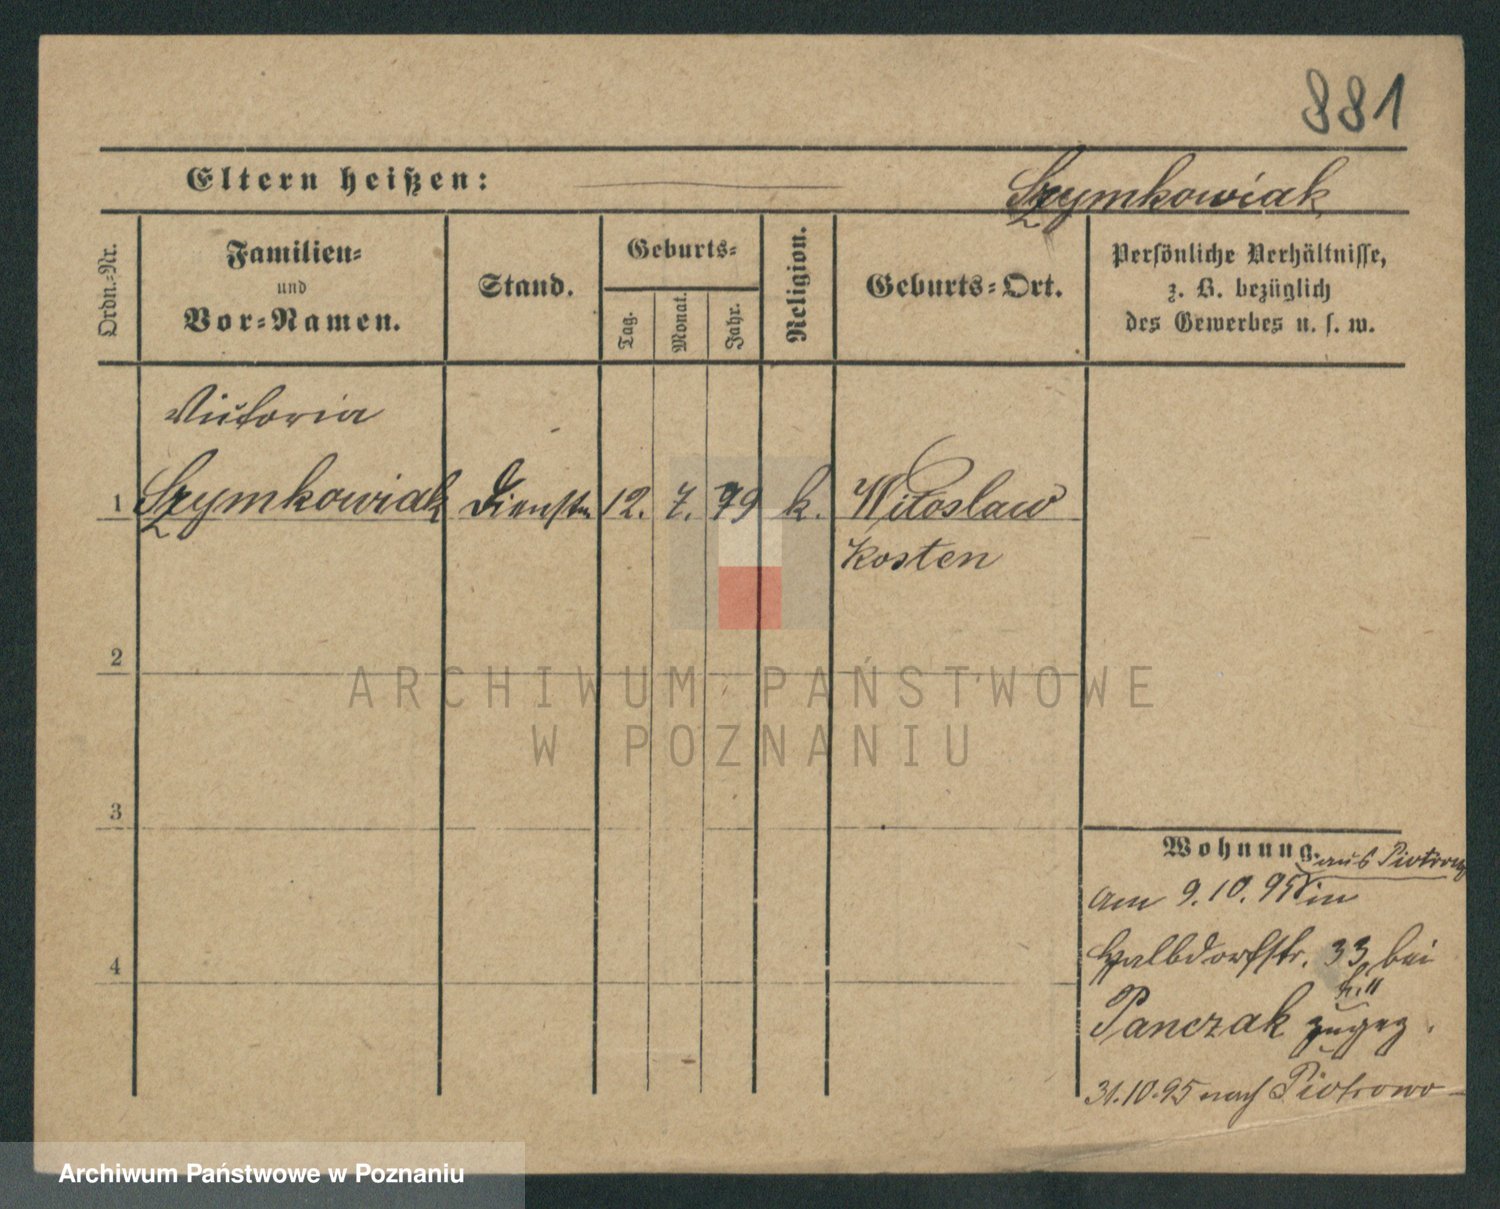 881
Eltern heißen: Szymkowiak
Ordn.-Nr.
Familien-
und
Vor-Namen.
Stand.
Geburts-
Tag.
Monat.
Jahr.
Religion.
Geburts-Ort.
Persönliche Verhältnisse,
z. B. bezüglich
des Gewerbes u. s. w.
Victoria
1 Szymkowiak Dienstm 12. 7. 79 k. Witoslaw
Kosten
2
3
4
ARCHIWUM PAŃSTWOWE
W POZNANIU
Wohnung. aus Piotrowo
am 9.10.95 in
Halbdorfstr. 33 bei
Panczak zugez.
31.10.95 nach Piotrowo
Archiwum Państwowe w Poznaniu